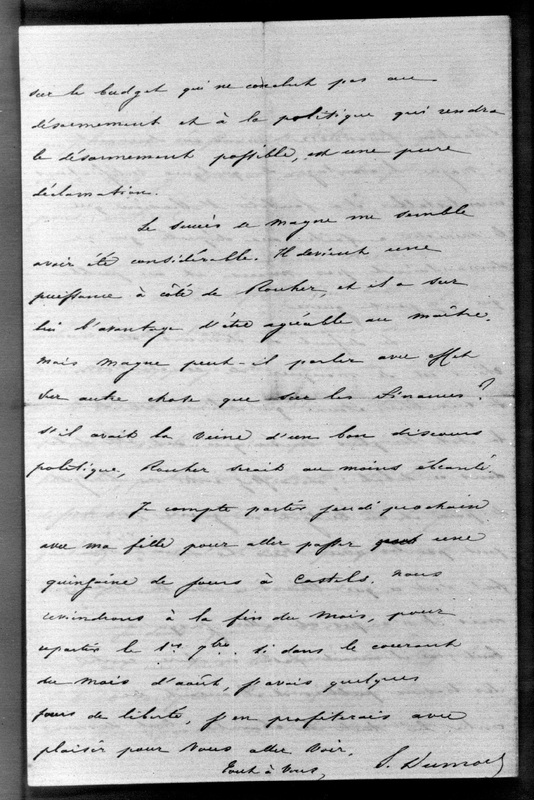 sur le budget qui ne conclut pas au
désarmement et à la politique qui rendra
le désarmement possible, est une pure
déclamation.
Le succès de Magne me semble
avoir été considérable. Il devient une
puissance à côté de Rouher, et il a sur
lui l'avantage d'être agréable au maître.
Mais Magne peut-il parler avec effet
sur autre chose que sur les finances ?
S'il avait la veine d'un bon discours
politique, Rouher serait au moins écanté
Je compte partir jeudi prochain
avec ma fille pour aller passer une
quinzaine de jours à Castels. Nous
reviendrons à la fin du mois, pour
repartir le 1er 9bre. Si dans le courant
du mois d'août, j'avais quelques
jours de liberté, j'en profiterais avec
plaisir pour vous aller voir.
Tout à vous,
S. Dumon